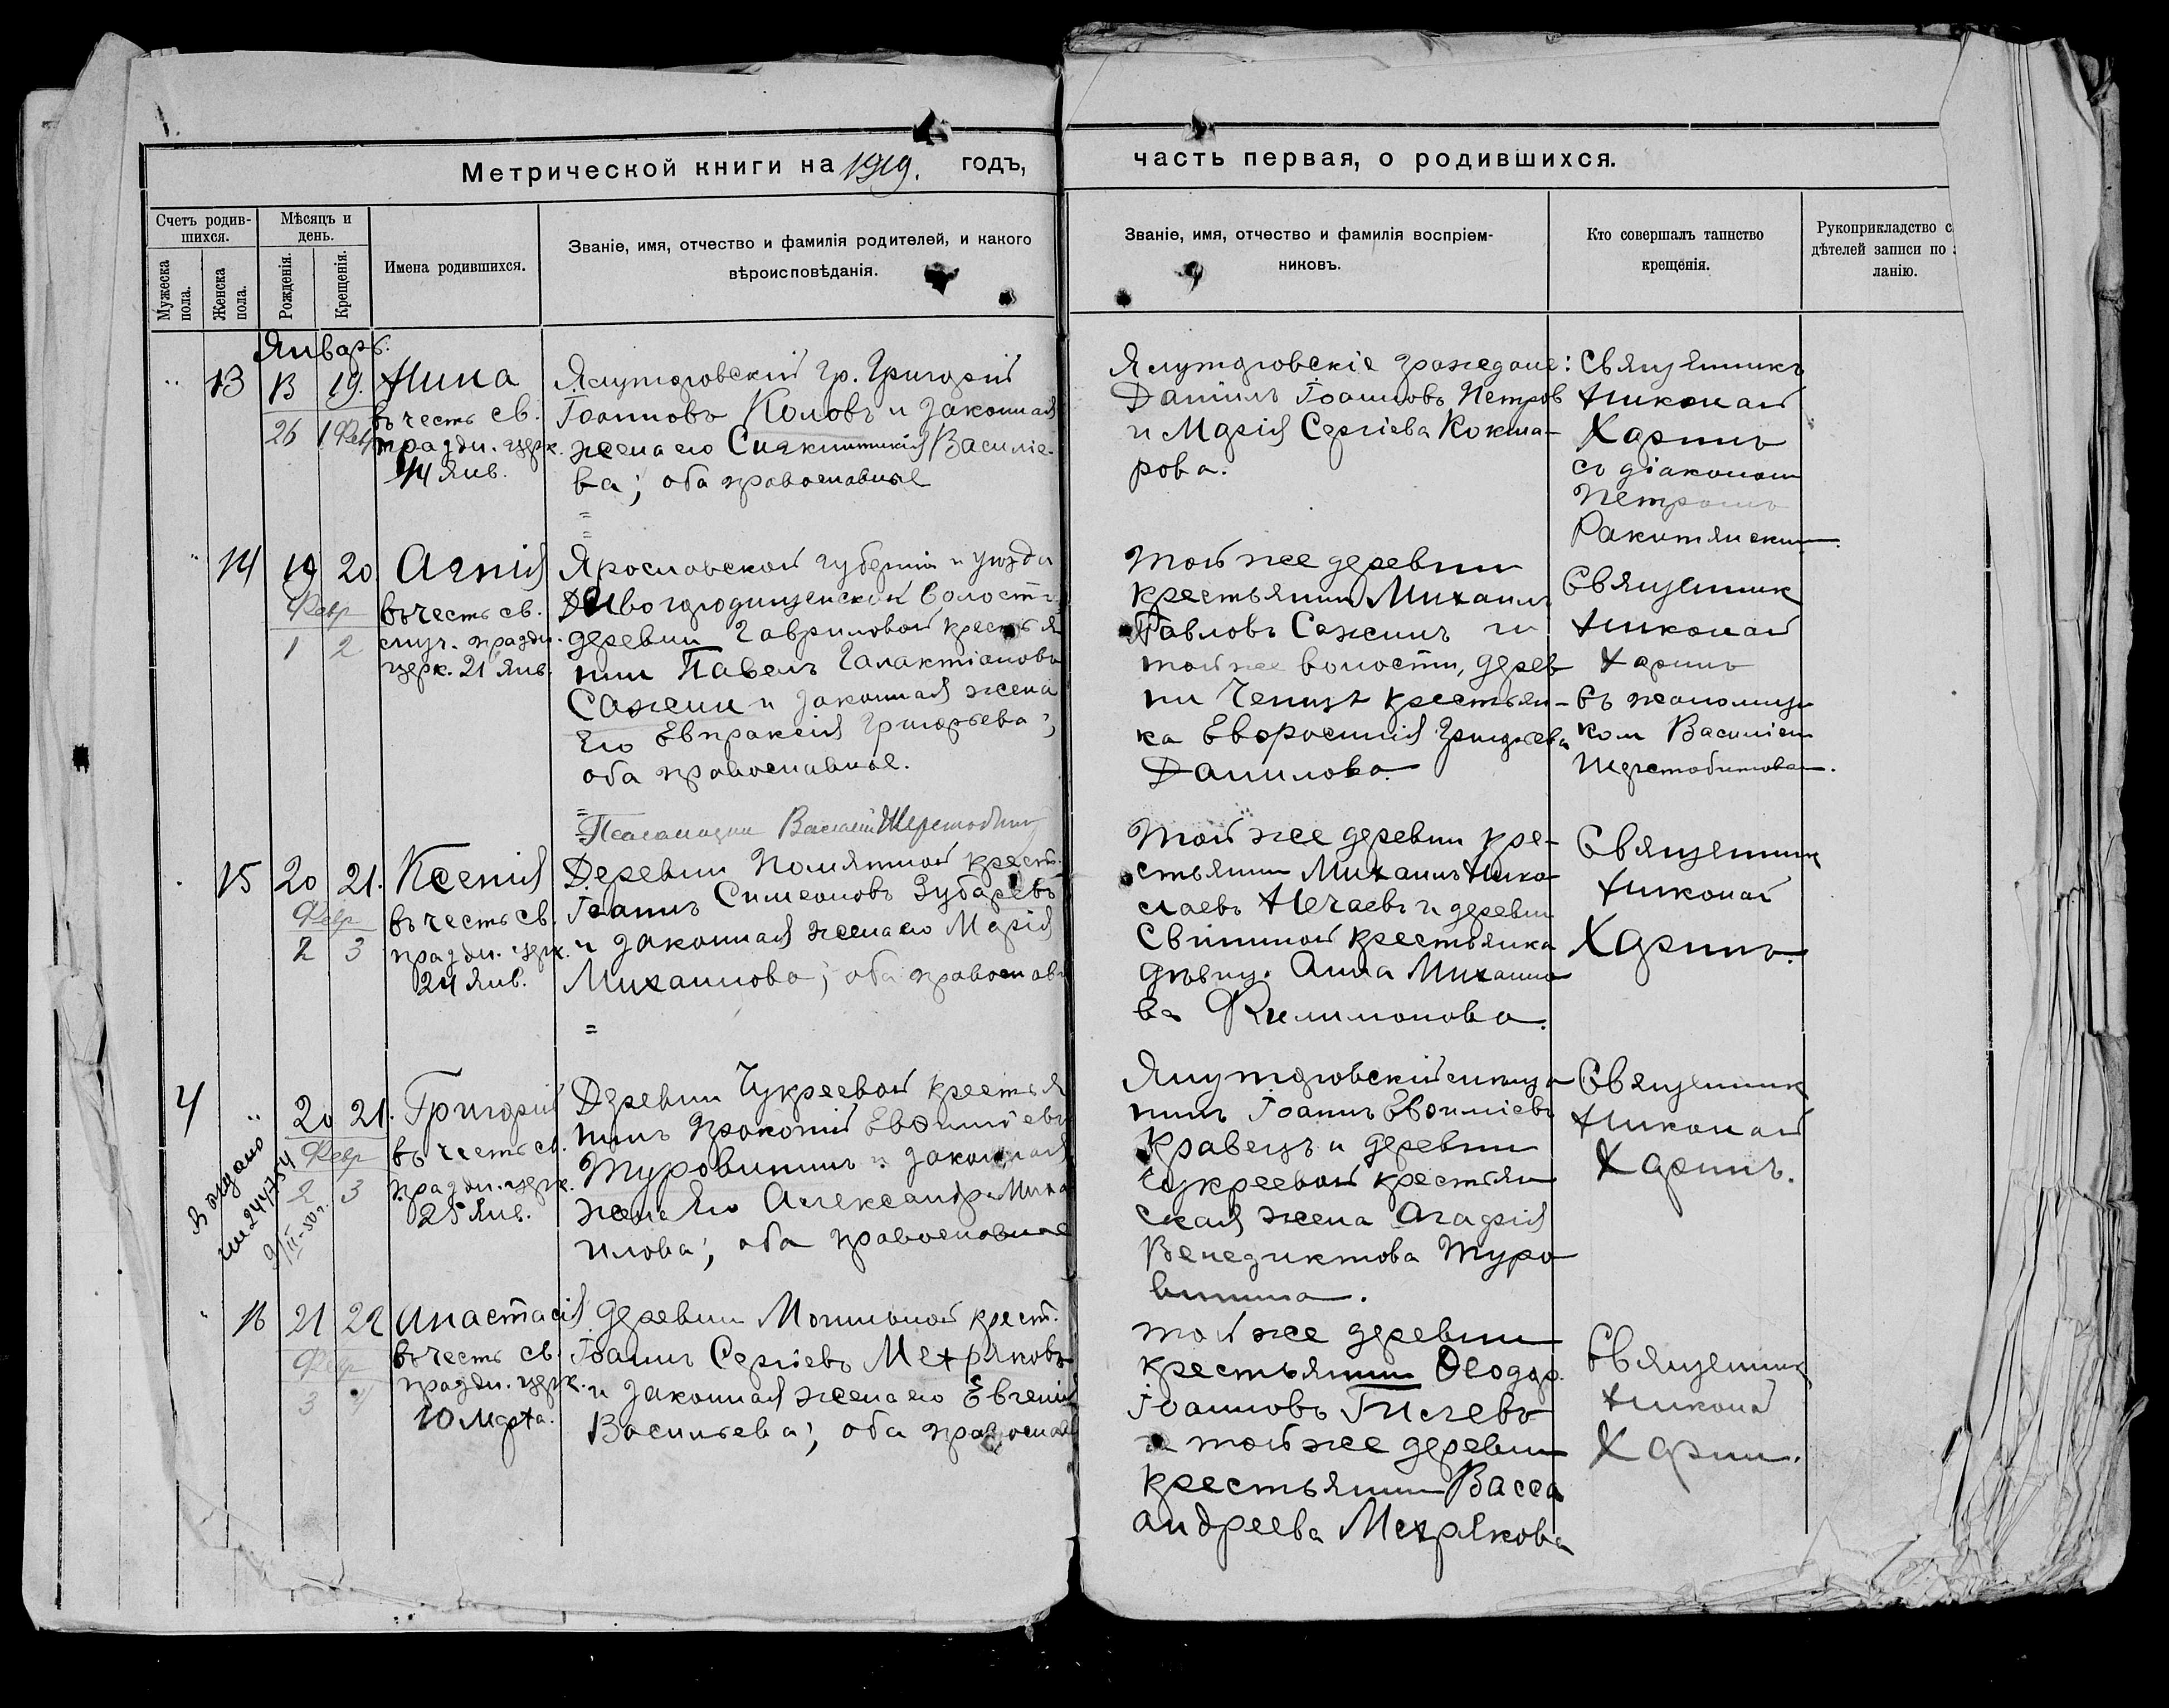 Метрической книги на 1919. годъ,
часть первая, о родившихся.
Счетъ родив-
шихся.
Мѣсяцъ и
день.
Мужеска
пола.
Женска
пола.
Рожденія.
Крещенія.
Имена родившихся.
Званіе, имя, отчество и фамилія родителей, и какого
вѣроисповѣданія.
Званіе, имя, отчество и фамилія воспріем-
никовъ.
Кто совершалъ таинство
крещенія.
Рукоприкладство с
дѣтелей записи по
ланію.
Январь.
13 13 19. Нина
26 1 Фев
въ честь св.
праздн. церк.
14 Янв.
Ялуторовскій гр. Григорій
Іоанновъ Коловъ и законная
жена его Василіе-
ва; оба православные
Ялуторовскіе граждане:
Даніилъ Іоанновъ Петров
и Марія Сергіева Кокша-
рова.
Священникъ
Николай
Харинъ
съ діакономъ
Петромъ
Ракитянским.
14 19 20 Агнія
Февр
1 2
въ честь св.
случ. праздн.
церк. 21 Янв.
Ярославской губерніи и уѣзда
волости
деревни Гавриловой крестья
нин Павелъ Галактіоновъ
Сажин и законная жена
его Евпраксія Григорьева;
оба православные.
Псаломщик Василій Шерстобитов
Той же деревни
крестьянин Михаилъ
Павловъ Сажинъ и
той же волости, дерев
ни крестьян-
ка Евфросинія Григорьева
Данилова.
Священник
Николай
Харинъ
съ псаломщи
ком Василіем
Шерстобитовым.
15 20 21. Ксенія
Февр
2 3
въ честь св.
праздн. церк.
24 Янв.
Деревни крест.
Іоаннъ Симеоновъ Зубаревъ
и законная жена его Марія
Михаилова; оба православ
Той же деревни кре-
стьянин Михаилъ Нико-
лаевъ Нечаевъ и деревни
Свининой крестьянка
дѣвица Анна Михаило
ва Филимонова.
Священник
Николай
Харинъ.
4 20 21. Григорій
Февр
2 3
въ честь св.
праздн. церк.
25 Янв.
9/II-50г.
Деревни Чукреевой крестья
нинъ Прокопій Евфиміевъ
Туровининъ и законная
жена его Александра Миха
илова; оба православные
Ялуторовскій мѣща
нинъ Іоаннъ Евфиміевъ
Кравецъ и деревни
Чукреевой крестьян
ская жена Агафія
Венедиктова Туро
винина.
Священник
Николай
Харинъ.
16 21 22 Анастасія
Февр
3 4
въ честь св.
праздн. церк.
10 Марта.
Деревни Могильной крест.
Іоаннъ Сергіевъ Мехряковъ
и законная жена его Евгенія
Васильева; оба православ
Той же деревни
крестьянин Ѳеодор.
Іоанновъ
и той же деревни
крестьянин Васса
Андреева Мехрякова
Священник
Николай
Харин.